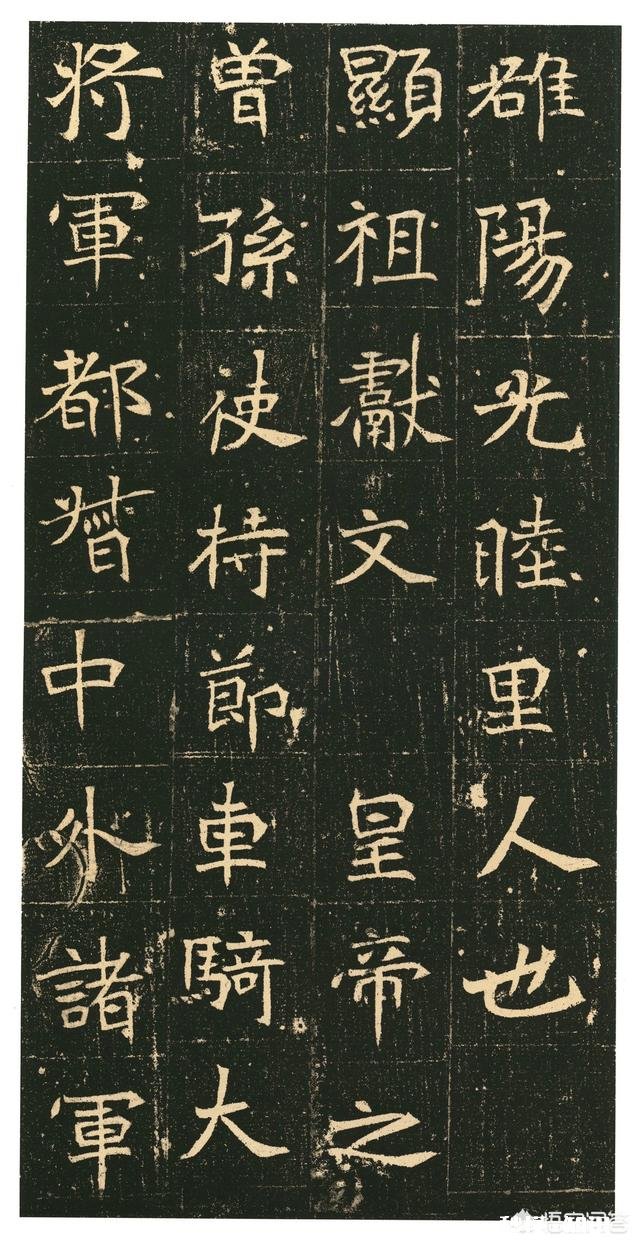 雒陽光睦里人也
顯祖獻文皇帝之
曾孫使持節車騎大
將軍都督中外諸軍